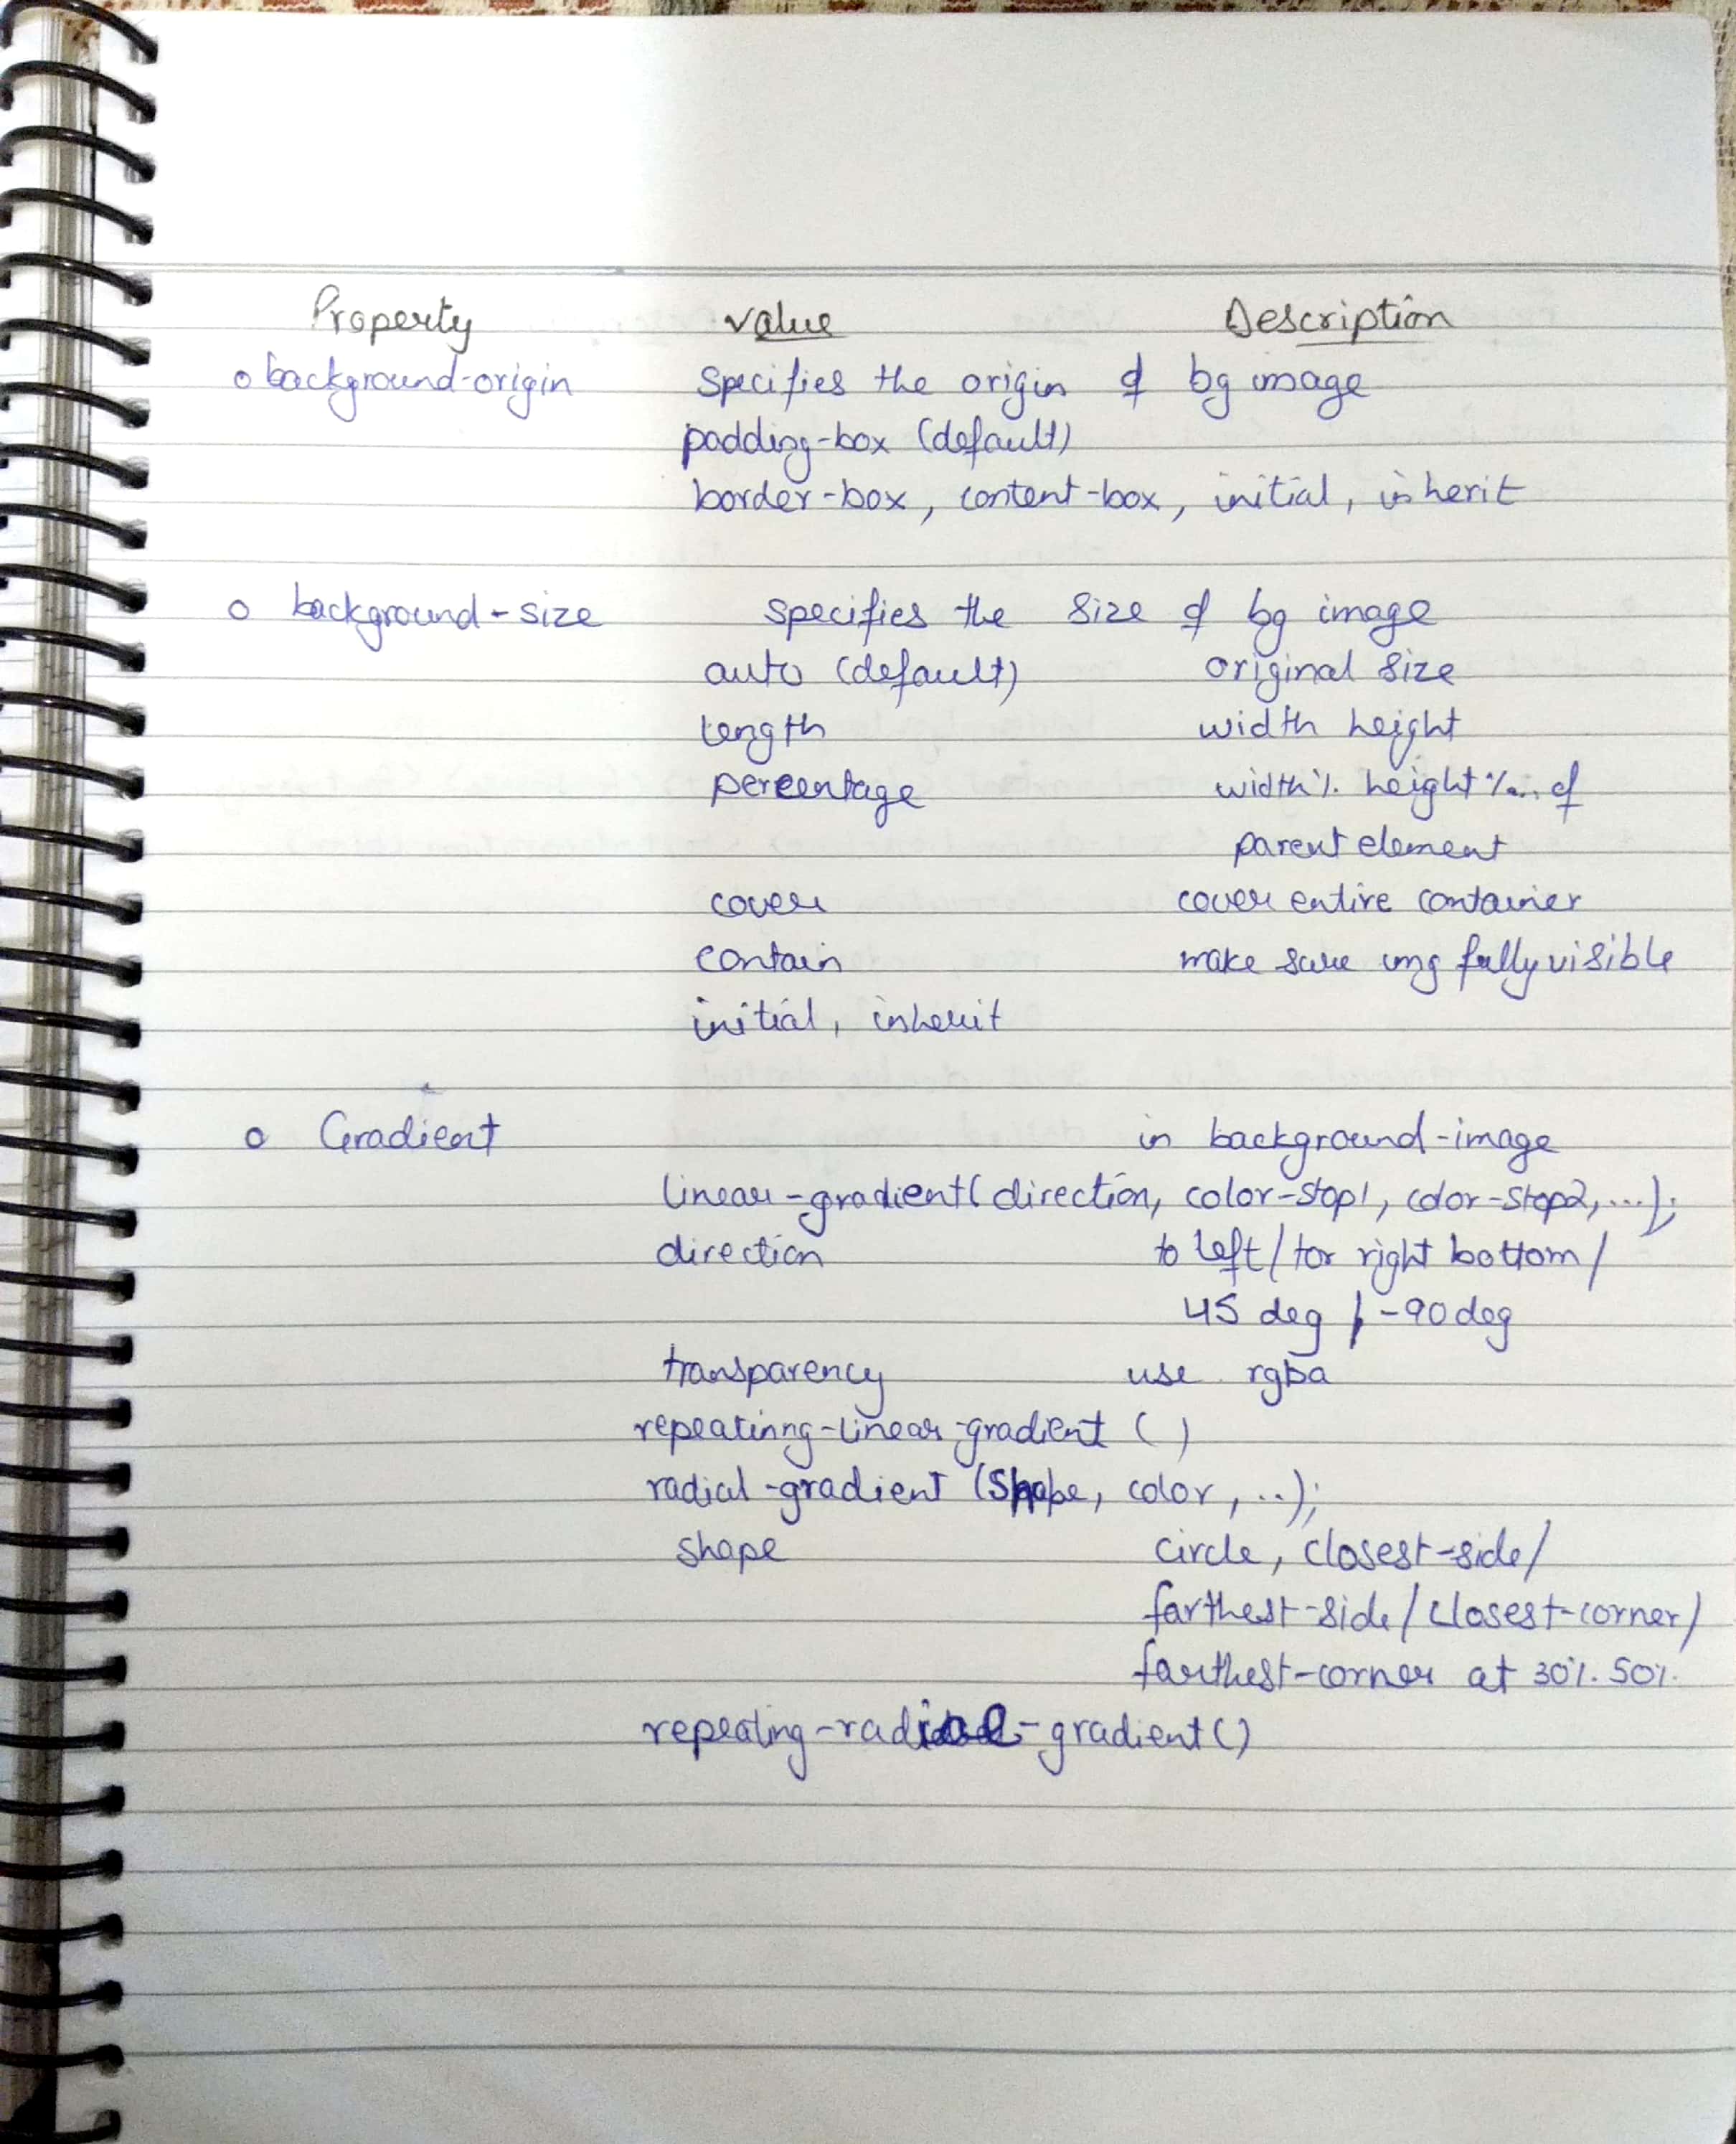 Property value Description
o background-origin specifies the origin of bg image
padding-box (default)
border-box, content-box, initial, inherit
o background-size specifies the size of bg image
auto (default) original size
length width height
percentage width% height% ... of
parent element
cover cover entire container
contain make sure img fully visible
initial, inherit
o Gradient in background-image
linear-gradient(direction, color-stop1, color-stop2, ...);
direction to left/tor right bottom/
45 deg / -90 deg
transparency use rgba
repeatinng-linear-gradient ( )
radial-gradient (Shape, color, ..);
shape circle, closest-side/
farthest-side/closest-corner/
farthest-corner at 30% 50%.
repeating-radial-gradient()